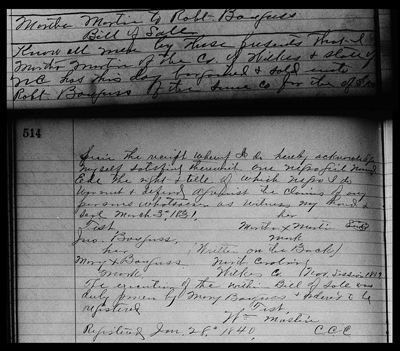 Martha Martin to Robt Bauguss
Bill of Sale
Know all men by these presents that I
Martha Martin of the Co. of Wilkes & State of
NC has this day bargained & sold unto
Robt Bauguss of the same Co for the of
514
the receipt whereof I do hereby acknowledge
myself satisfied therewith one negro girl named
the right & title of which negro I do
warrant & defend against the claims of any
persons whatsoever as witness my hand &
seal March 3rd 1831.
her
Test, Martha X Martin Seal
Jno. Bauguss, mark
her Written on the Back
Mary X Bauguss North Carolina
mark Wilkes Co. Session
The execution of the within Bill of Sale was
duly proven by Mary Bauguss & ordered to be
registered
Test,
Wm Mastin
Registered Jan. 28th 1840. C.C.C.